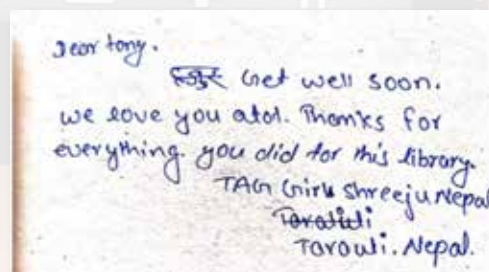 Dear tony.
Get well soon.
we love you alot. Thanks for
everything. you did for this library.
TAG Giru shreeju Nepal
Tarauli. Nepal.